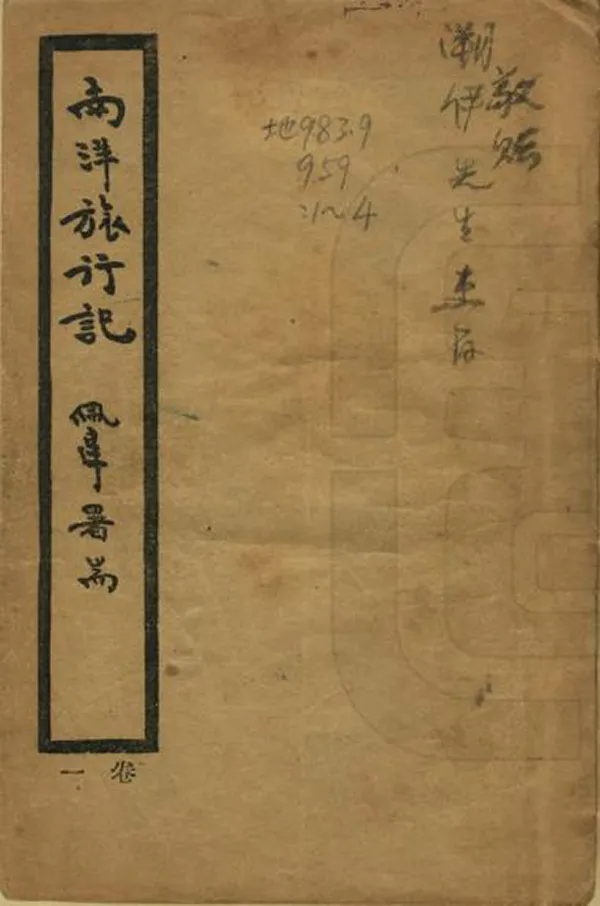 敬贻
潮伊先生惠存
地983.9
959
:1~4
南洋旅行記
佩韋署耑
卷一